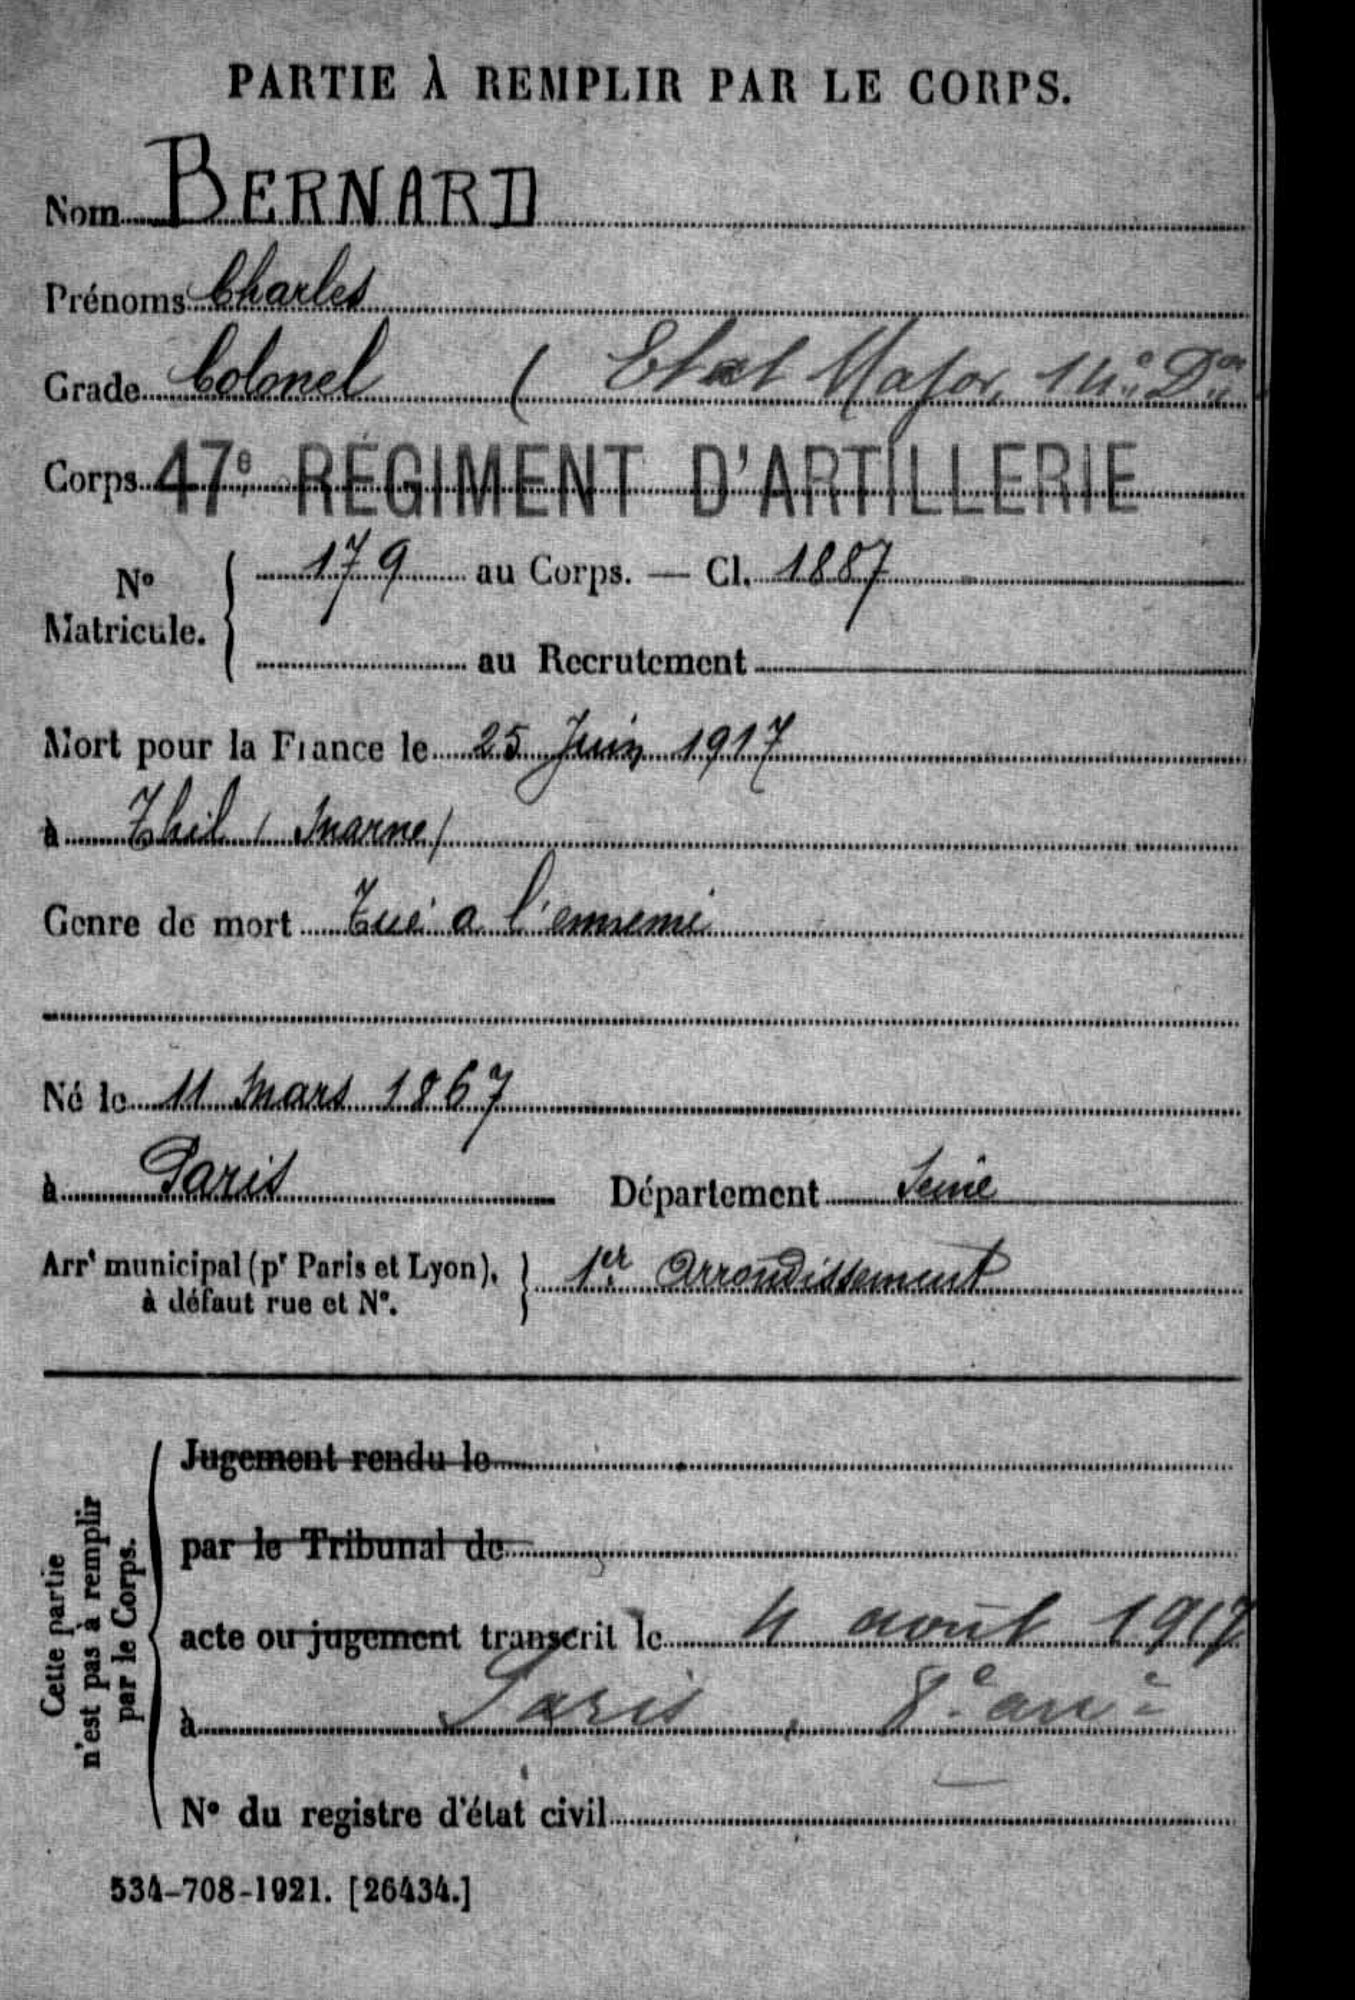 PARTIE À REMPLIR PAR LE CORPS.
Nom BERNARD
Prénoms Charles
Grade Colonel ( Etat Major, 14e Don
Corps 47e RÉGIMENT D'ARTILLERIE
No Matricule. { 179 au Corps. — Cl. 1887
au Recrutement
Mort pour la France le 25 Juin 1917
à Thil (Marne)
Genre de mort Tué a l'ennemi
Né le 11 Mars 1867
à Paris Département Seine
Arrt municipal (pr Paris et Lyon), } 1er Arrondissement
à défaut rue et No.
Cette partie n'est pas à remplir par le Corps.
Jugement rendu le
par le Tribunal de
acte ou jugement transcrit le 4 août 1917
à Paris, 8e arre
No du registre d'état civil
534-708-1921. [26434.]